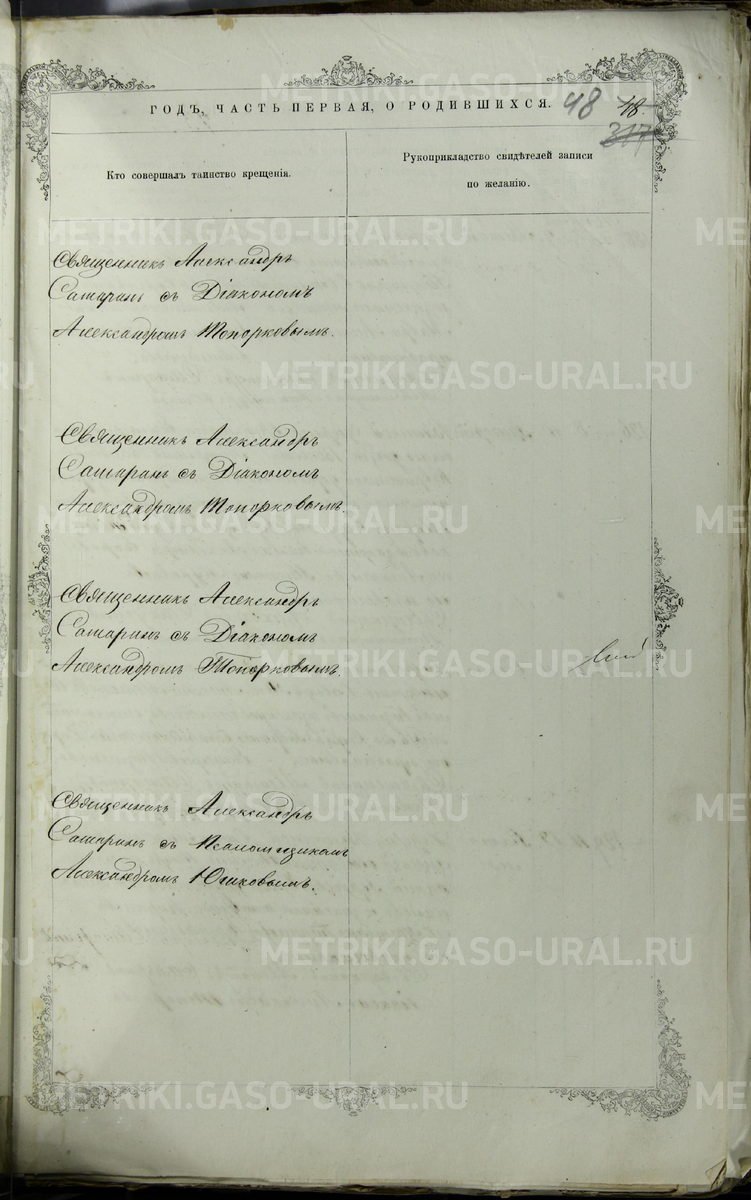 ГОДЪ, ЧАСТЬ ПЕРВАЯ, О РОДИВШИХСЯ. 48 48.
317
Кто совершалъ таинство крещенія.
Рукоприкладство свидѣтелей записи
по желанію.
Священникъ Александръ
Сатаринъ съ Діакономъ
Александромъ Топорковымъ.
Священникъ Александръ
Сатаринъ съ Діакономъ
Александромъ Топорковымъ.
Священникъ Александръ
Сатаринъ съ Діакономъ
Александромъ Топорковымъ.
Священникъ Александръ
Сатаринъ съ Псаломщикомъ
Александромъ Юшковымъ.
METRIKI.GASO-URAL.RU